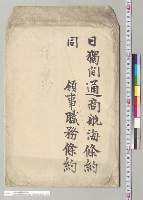 日獨間通商航海條約
同　領事職務條約